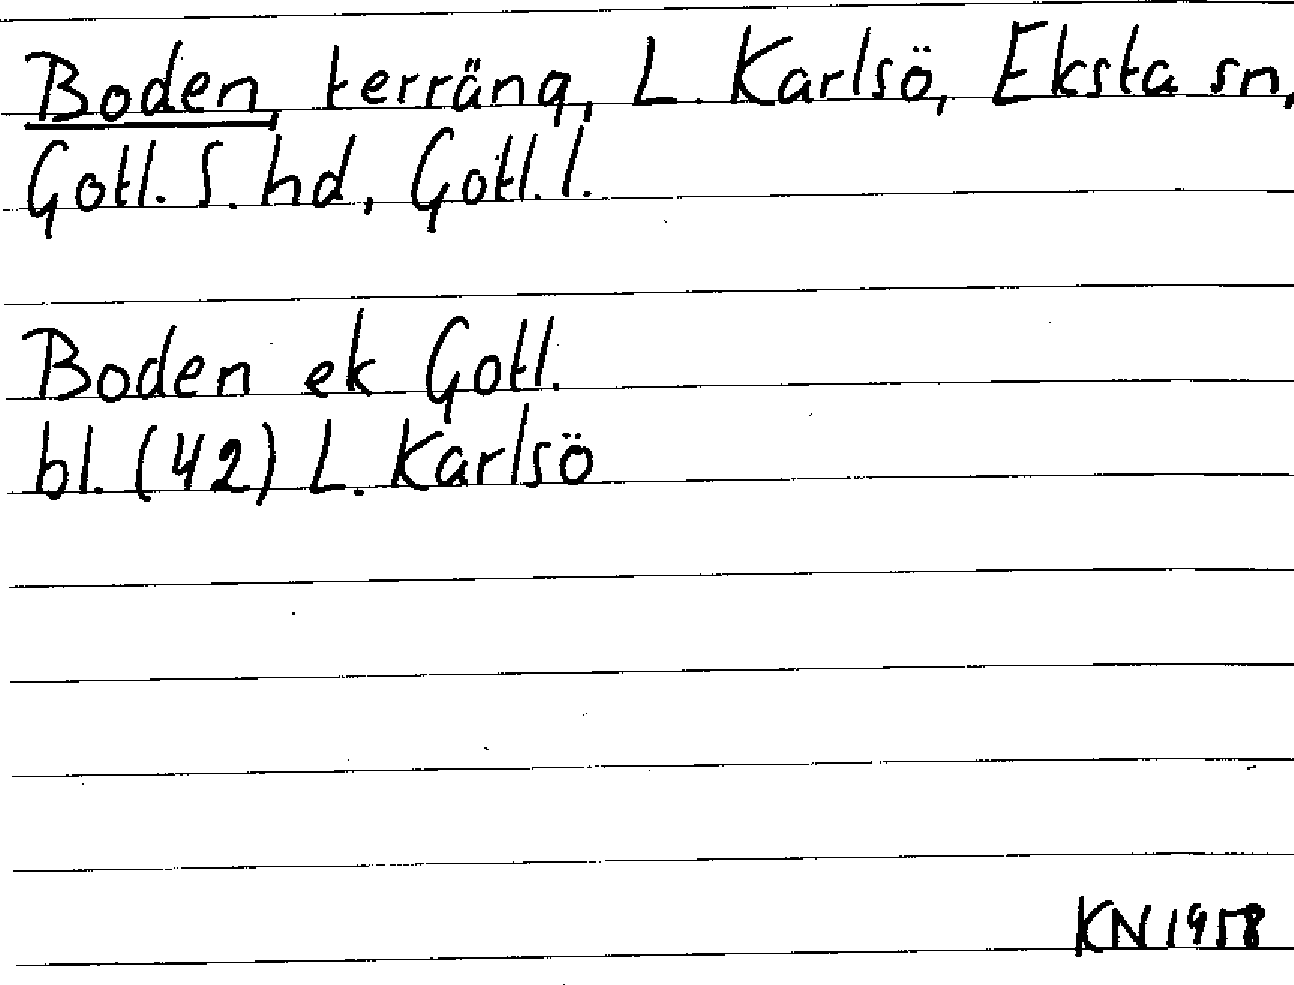 Boden, terräng, L. Karlsö, Eksta sn,
Gotl. S. hd, Gotl. l.
Boden ek Gotl.
bl. (42) L. Karlsö
KN 1958